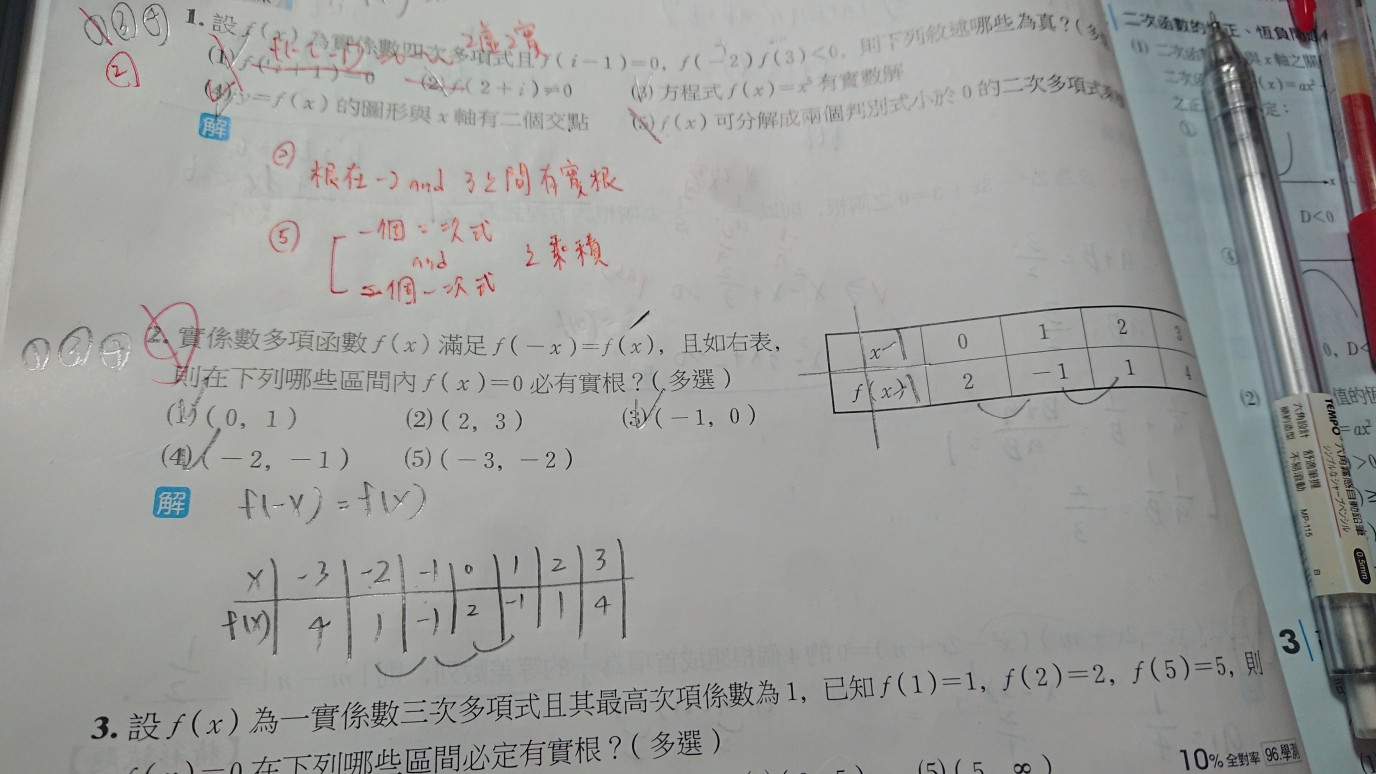 ①③④
②
1. 設 f(x) 為實係數四次多項式且 f(i-1)=0, f(-2)f(3)<0, 則下列敘述哪些為真?(多
2虛2實
(1) f(-i-1)=0 (2) f(2+i)≠0 (3) 方程式 f(x)=x⁵ 有實數解
(4) y=f(x) 的圖形與 x 軸有二個交點 (5) f(x) 可分解成兩個判別式小於 0 的二次多項式
解
② 根在-2 and 3之間有實根
⑤ 一個二次式
and 之乘積
二個一次式
①③④
2. 實係數多項函數 f(x) 滿足 f(-x)=f(x), 且如右表,
則在下列哪些區間內 f(x)=0 必有實根?(多選)
(1) (0, 1) (2) (2, 3) (3) (-1, 0)
(4) (-2, -1) (5) (-3, -2)
x 0 1 2 3
f(x) 2 -1 1 4
解
f(-x) = f(x)
x -3 -2 -1 0 1 2 3
f(x) 4 1 -1 2 -1 1 4
3. 設 f(x) 為一實係數三次多項式且其最高次項係數為1, 已知 f(1)=1, f(2)=2, f(5)=5, 則
f(x)=0 在下列哪些區間必定有實根?(多選)
(5) (5, ∞)
10% 全對率 96.學測
二次函數的 正、恆負
(1) 二次函 與 x 軸之關
二次 (x)=ax²
之正 定:
①
x
D<0
④
0, D<
(2) 值的恆
=ax²
>0
3
TEMPO
六角觸感自動鉛筆
シンプルなシャープペンシル
0.5mm
MP-115
六角設計 舒適筆握
簡約造型 不易滾動